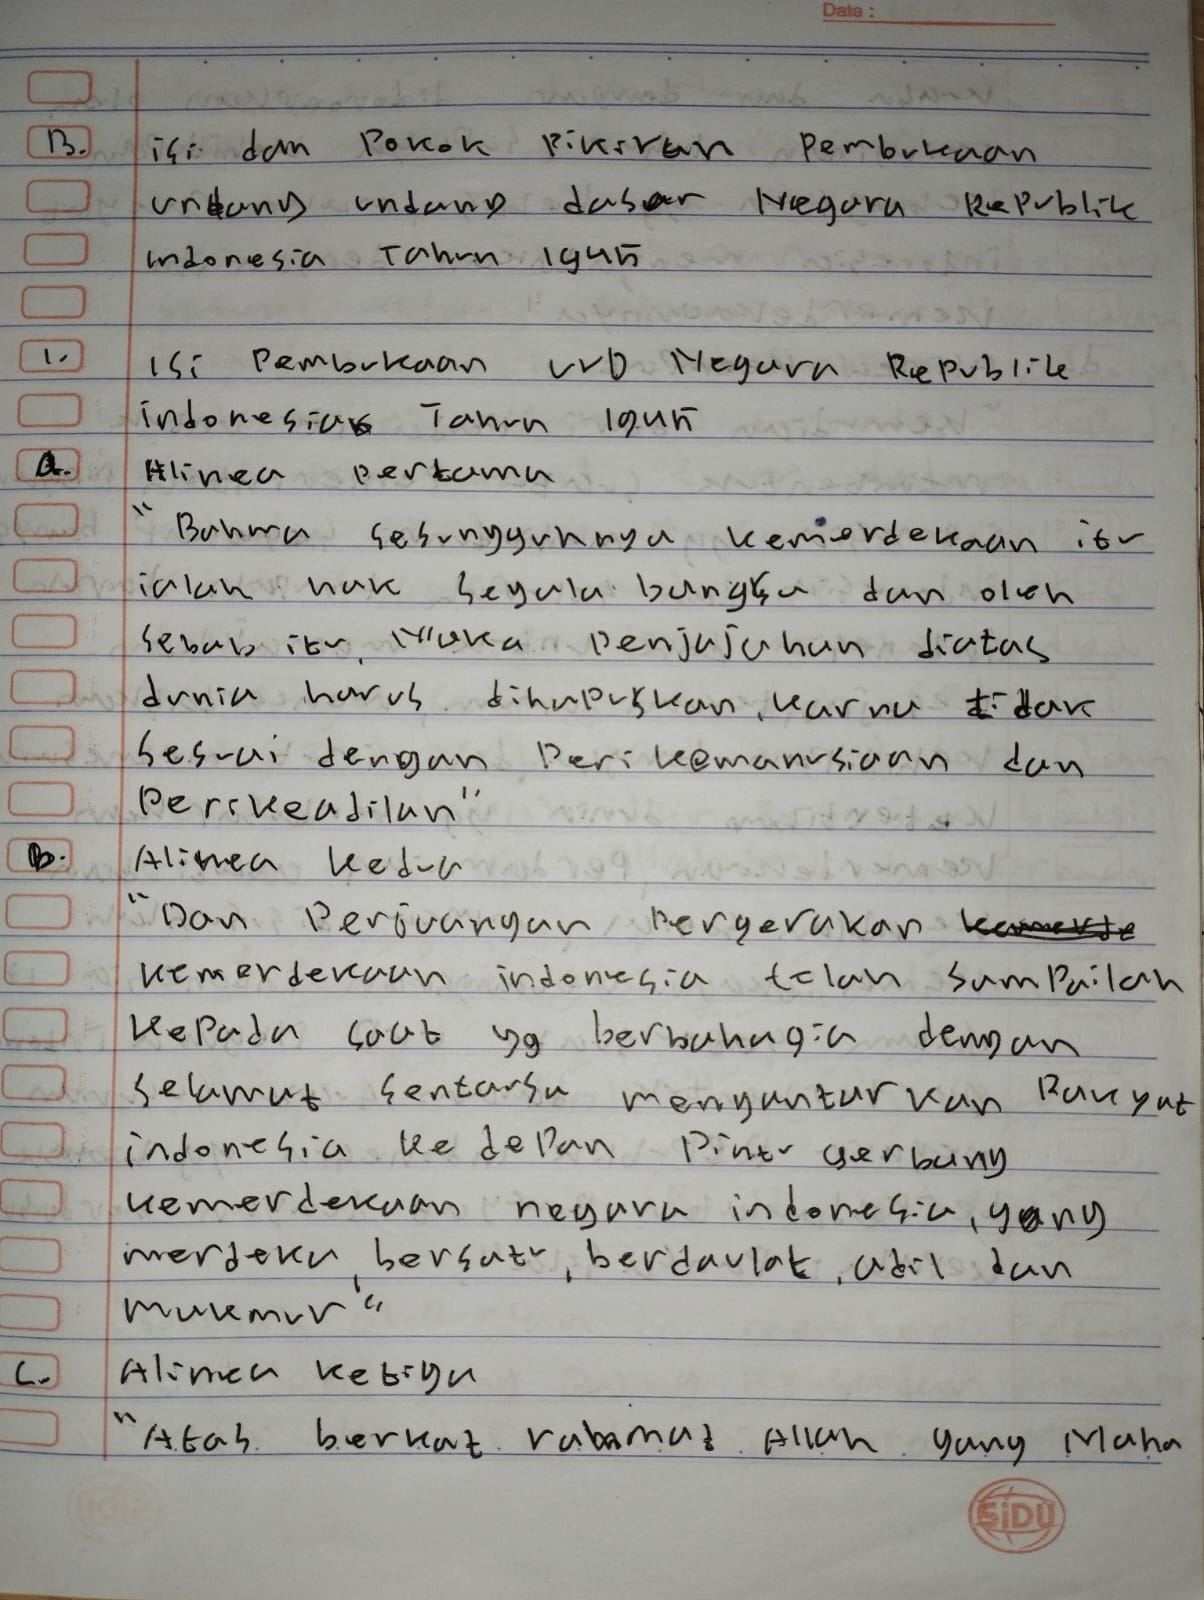 Date :
B. isi dan Pokok Pikiran Pembukaan
undang undang dasar Negara Republik
indonesia Tahun 1945
1. Isi Pembukaan UUD Negara Republik
indonesia Tahun 1945
a. Alinea pertama
"Bahwa sesungguhnya kemerdekaan itu
ialah hak segala bangsa dan oleh
sebab itu, Maka penjajahan diatas
dunia harus dihapuskan, karna tidak
sesuai dengan Peri kemanusiaan dan
Perikeadilan"
b. Alinea kedua
"Dan Perjuangan Pergerakan kemerde
kemerdekaan indonesia telah sampailah
kepada saat yg berbahagia dengan
selamat sentarsa mengantarkan Rakyat
indonesia ke depan Pintu gerbang
kemerdekaan negara indonesia, yang
merdeka, bersatu, berdaulat, adil dan
makmur"
c. Alinea ketiga
"Atas berkat rahmat Allah yang Maha
SiDU